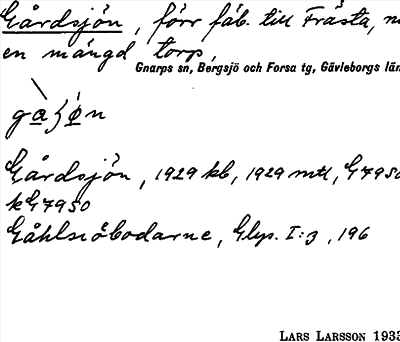 Gårdsjön, förr fäb. till Frästa, n
en mängd torp,
Gnarps sn, Bergsjö och Forsa tg, Gävleborgs län
Gårdsjön, 1929 kb, 1929 mtl, G7950
kG7950
Gåhlsiöbodarne, Glysp. I:3, 196
LARS LARSSON 1933